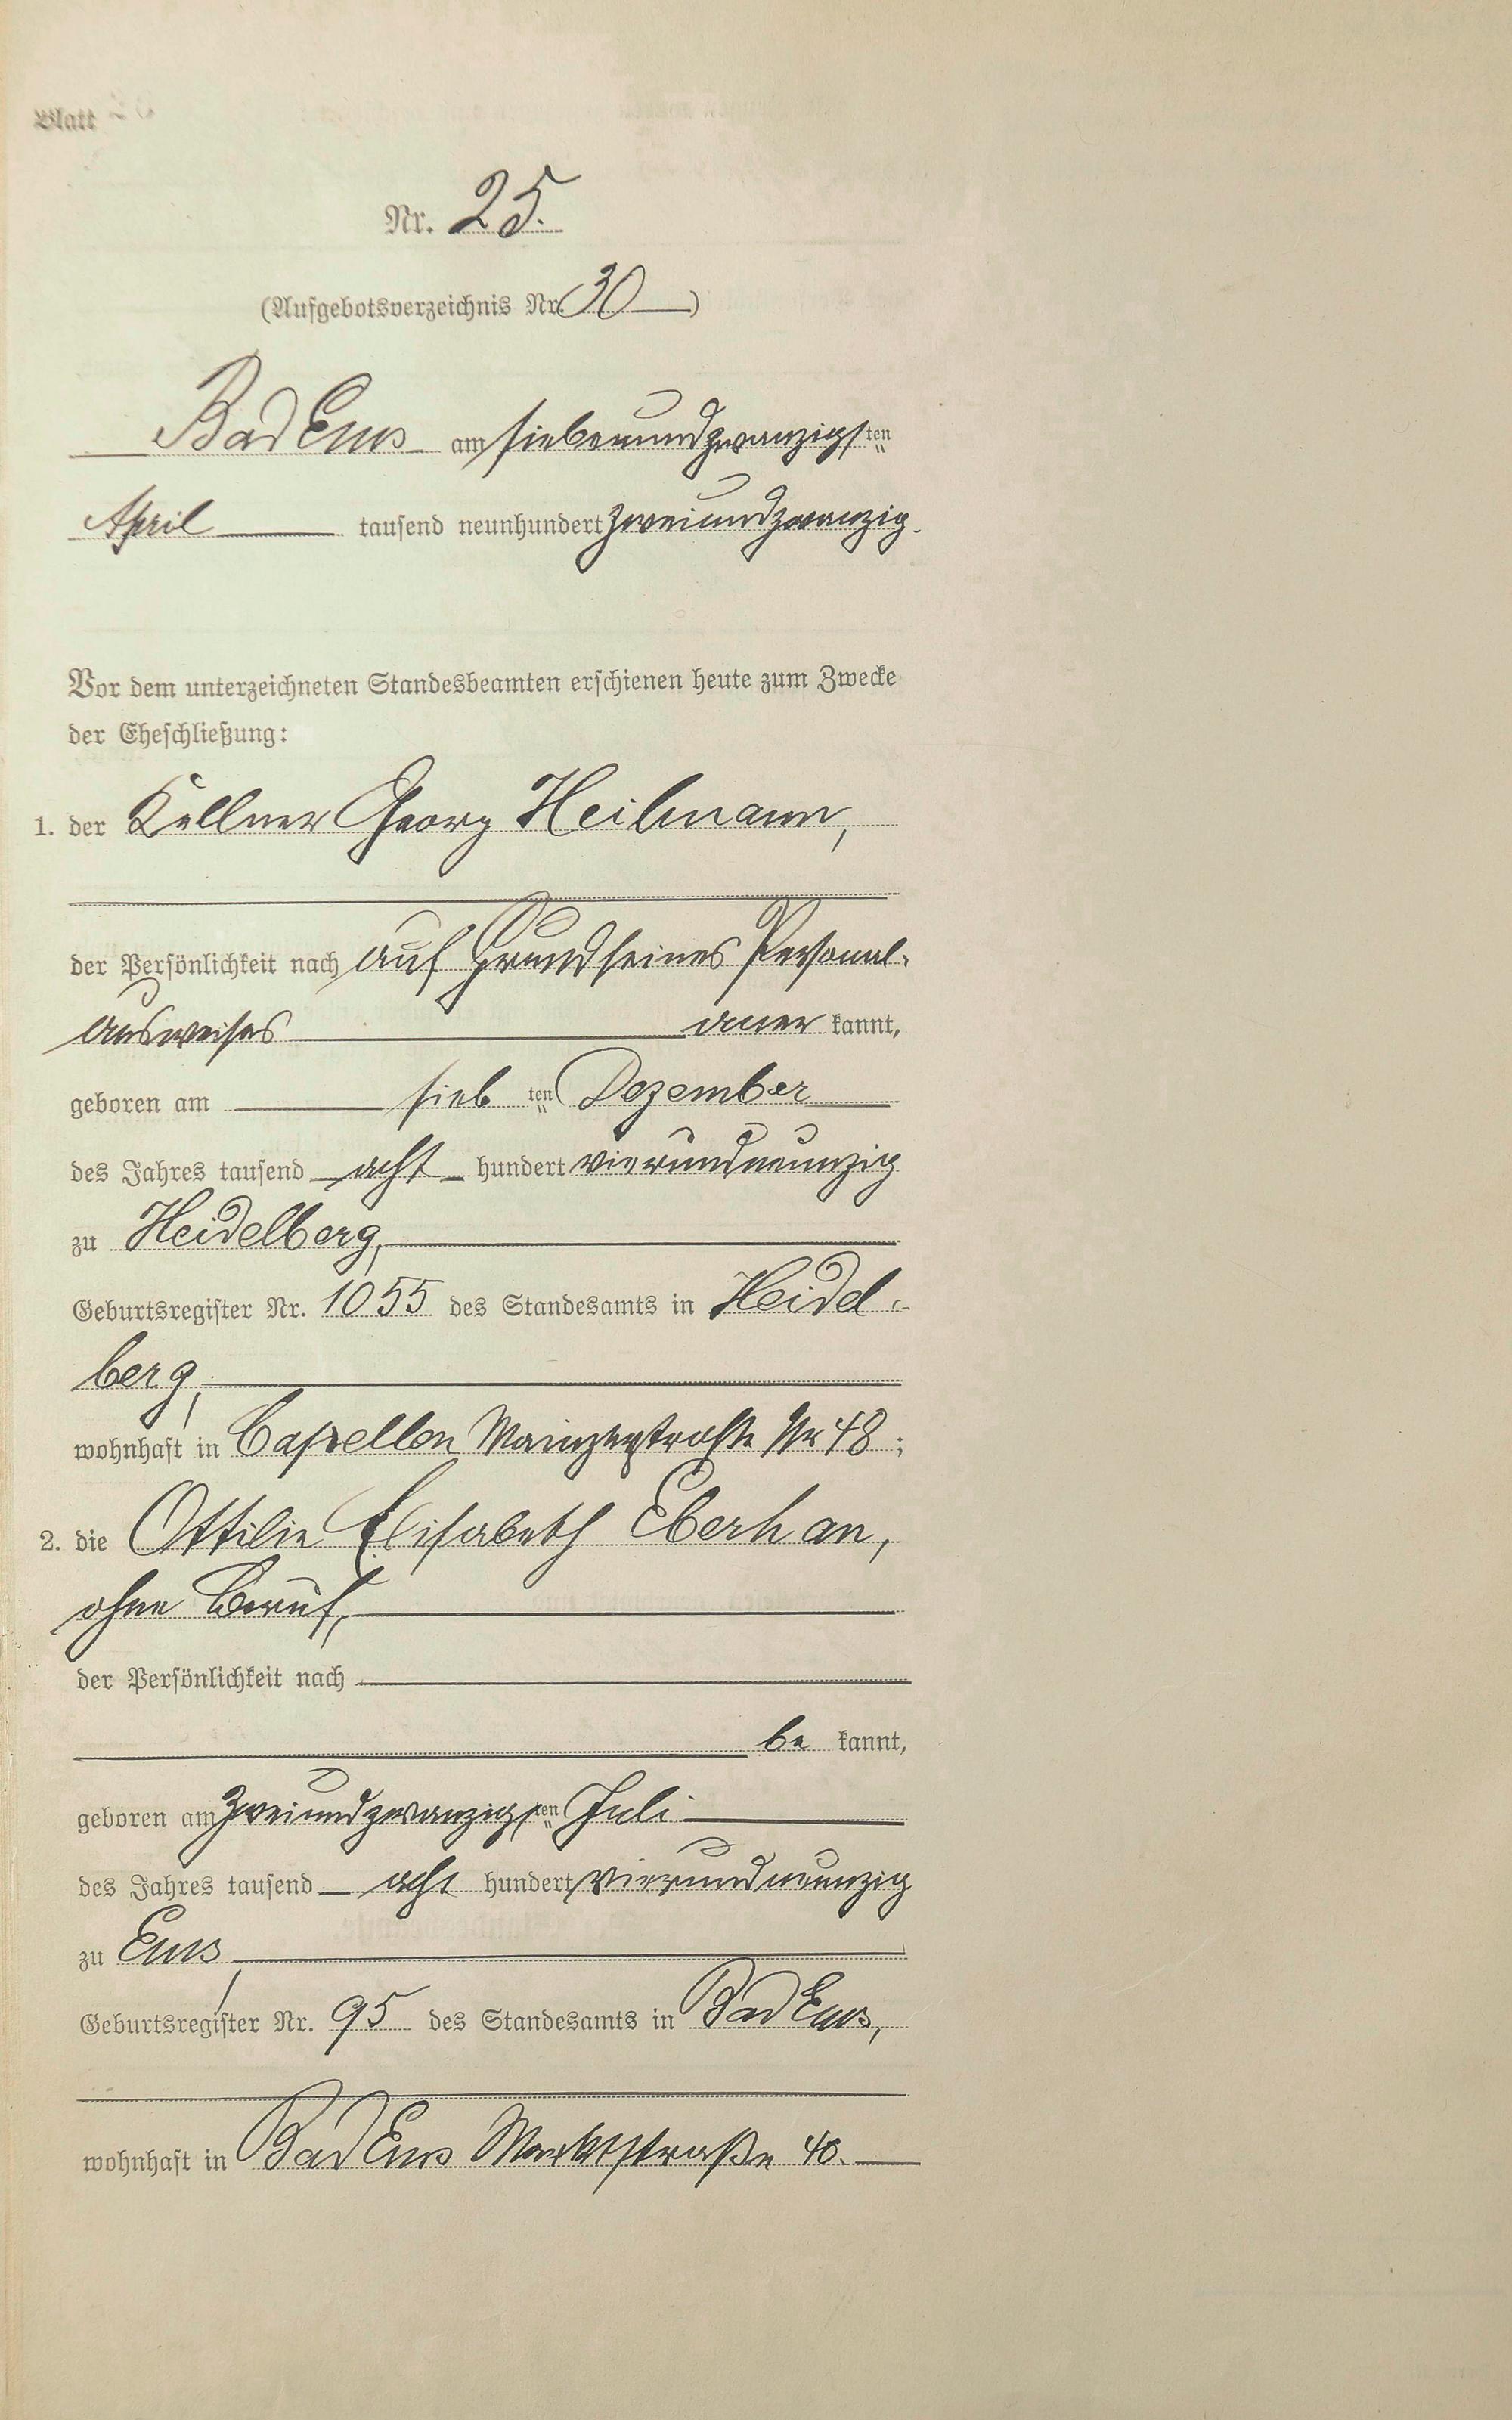 Blatt
Nr. 25.
(Aufgebotsverzeichnis Nr. 30)
Bad Ems am siebenundzwanzigsten
April tausend neunhundert zweiundzwanzig.
Vor dem unterzeichneten Standesbeamten erschienen heute zum Zwecke
der Eheschließung:
1. der Kellner Georg Heilmann,
der Persönlichkeit nach auf Grund seines Personal-
ausweises aner kannt,
geboren am sieb ten Dezember
des Jahres tausend acht hundert vierundneunzig
zu Heidelberg,
Geburtsregister Nr. 1055 des Standesamts in Heidel-
berg,
wohnhaft in Capellen Mainzerstraße Nr 48;
2. die Ottilie Elisabeth Eberhan,
ohne Beruf,
der Persönlichkeit nach
be kannt,
geboren am zweiundzwanzigsten Juli
des Jahres tausend acht hundert vierundneunzig
zu Ems,
Geburtsregister Nr. 95 des Standesamts in Bad Ems,
wohnhaft in Bad Ems Marktstraße 40.